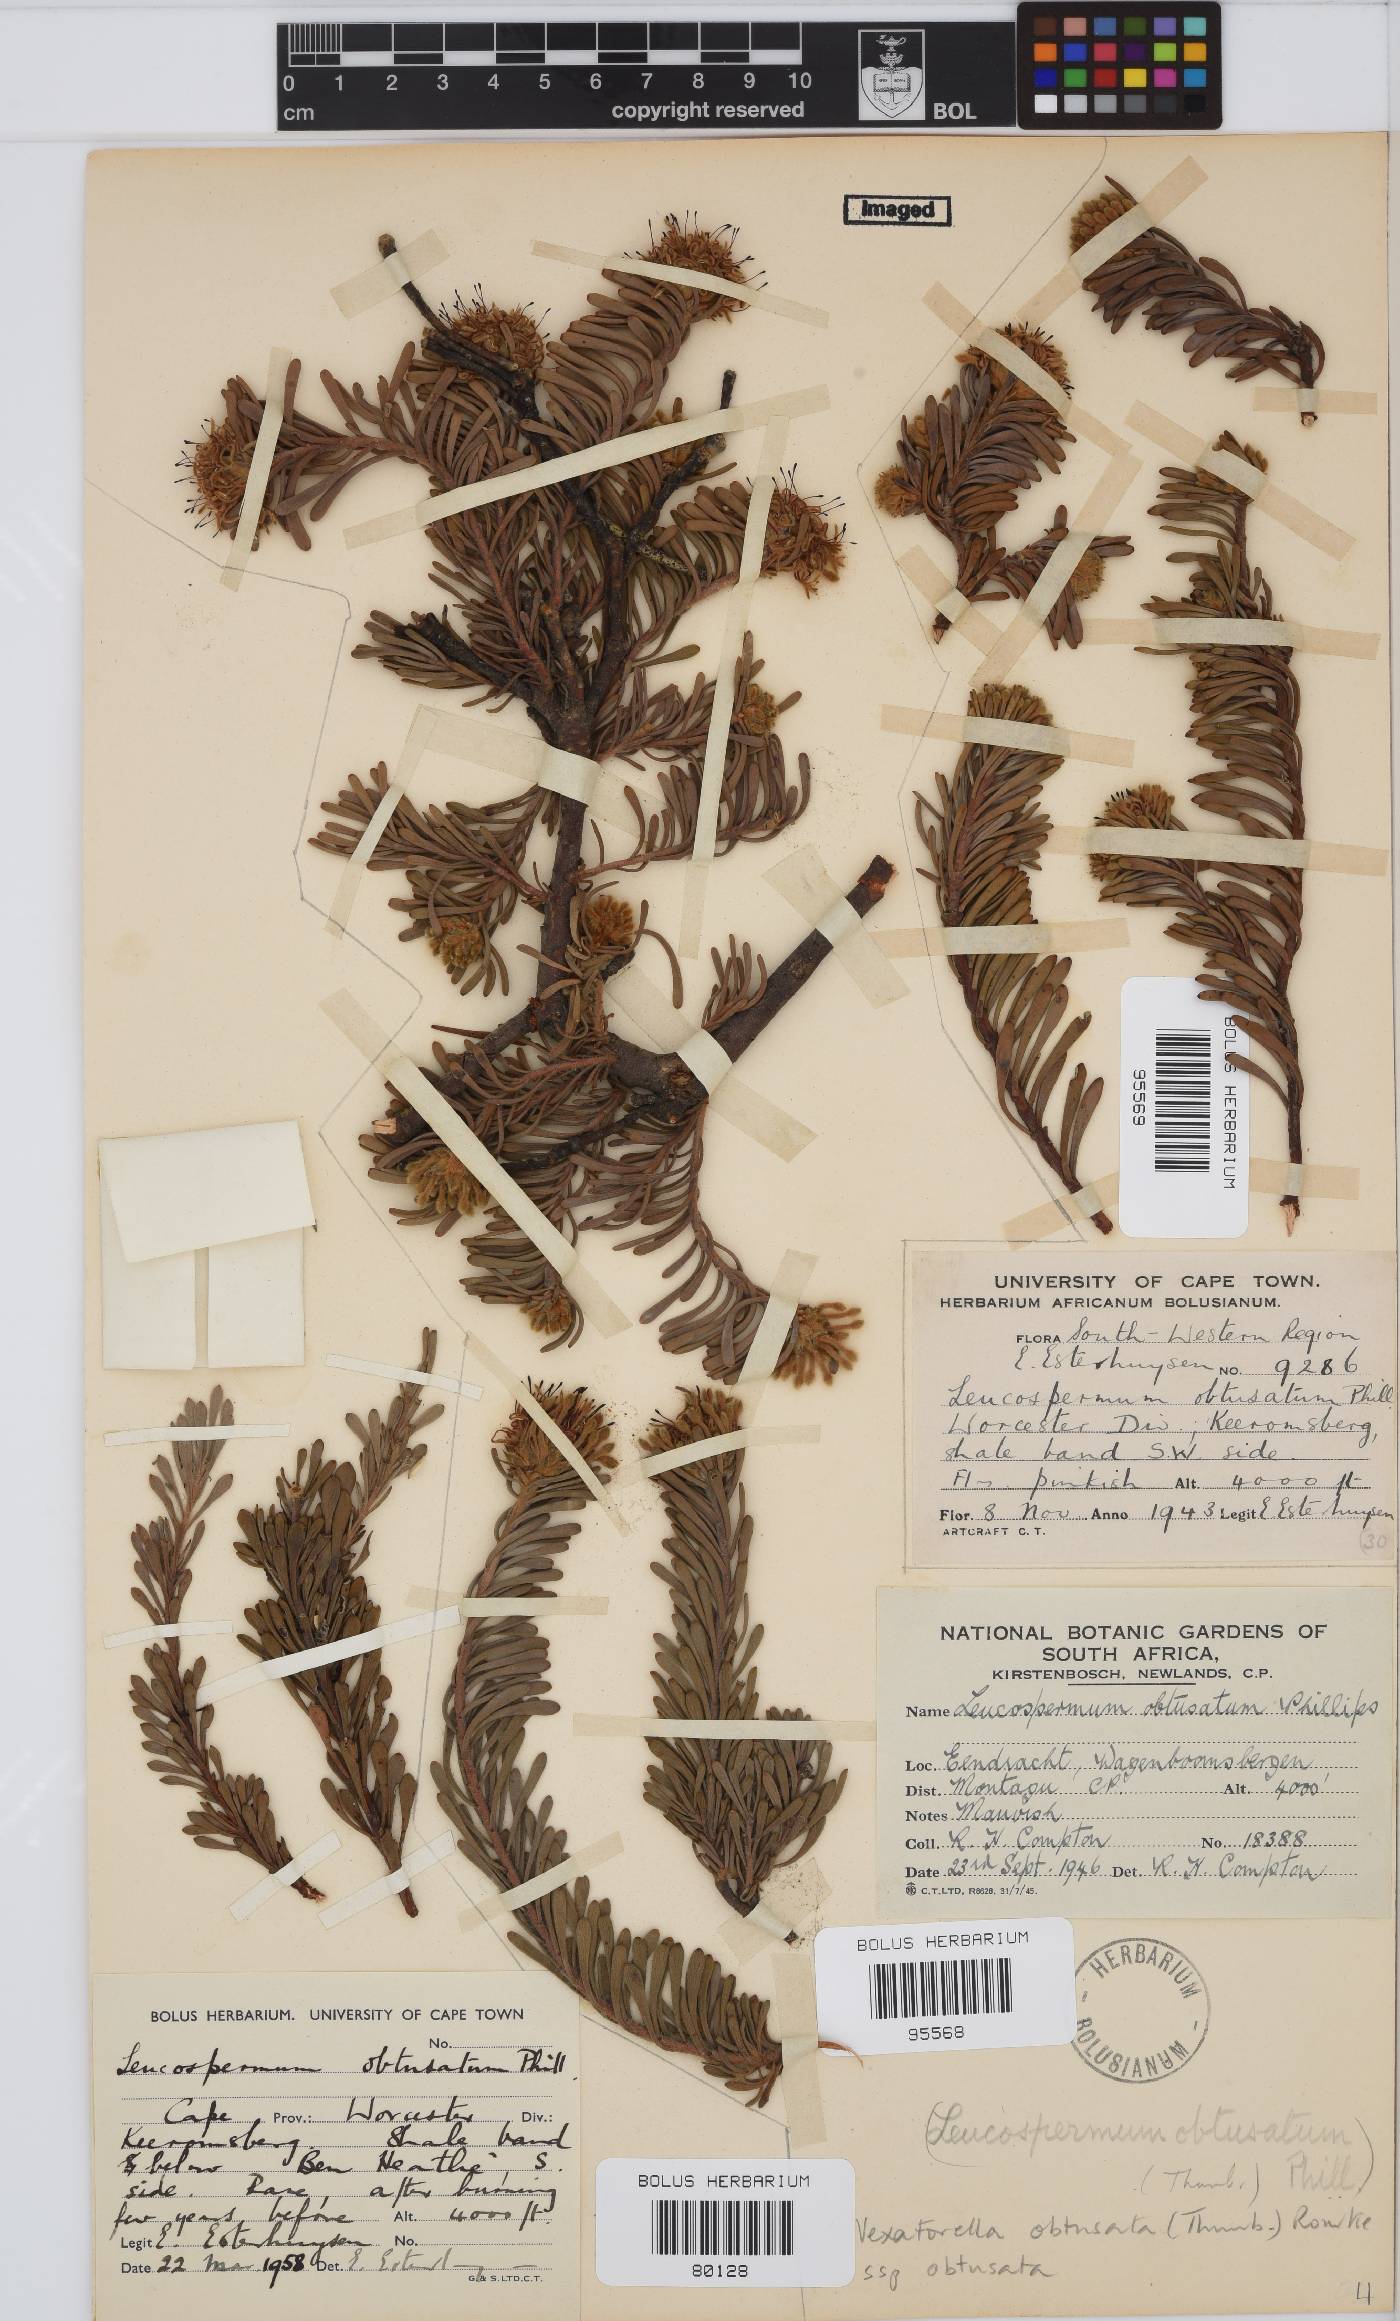 0 1 2 3 4 5 6 7 8 9 10
cm copyright reserved
BOL
Imaged
BOLUS HERBARIUM
95569
UNIVERSITY OF CAPE TOWN.
HERBARIUM AFRICANUM BOLUSIANUM.
FLORA South-Western Region
E. Esterhuysen No. 9286
Leucospermum obtusatum Phill
Worcester Div., Keeromsberg,
shale band S.W. side.
Fls pinkish Alt. 4000 ft
Flor. 8 Nov Anno 1943 Legit E Esterhuysen
ARTCRAFT C. T.
(30
NATIONAL BOTANIC GARDENS OF
SOUTH AFRICA,
KIRSTENBOSCH, NEWLANDS, C.P.
Name Leucospermum obtusatum Phillips
Loc. Eendracht, Wagenboomsbergen
Dist. Montagu C.P. Alt. 4000'
Notes Mauvish
Coll. R. H. Compton No. 18388
Date 23rd Sept. 1946 Det. R. H. Compton
C.T.LTD, R8628, 31/7/45.
BOLUS HERBARIUM
95568
HERBARIUM
BOLUSIANUM
(Leucospermum obtusatum
(Thunb.) Phill.)
Vexatorella obtusata (Thunb.) Rourke
ssp obtusata
4
BOLUS HERBARIUM. UNIVERSITY OF CAPE TOWN
No.
Leucospermum obtusatum Phill.
Cape Prov.: Worcester Div.:
Keeromsberg. Shale band
below Ben Heatlie, S.
side. Rare, after burning
few years before Alt. 4000 ft.
Legit E. Esterhuysen No.
Date 22 Mar 1958 Det. E. Esterh
G. & S. LTD. C.T.
BOLUS HERBARIUM
80128